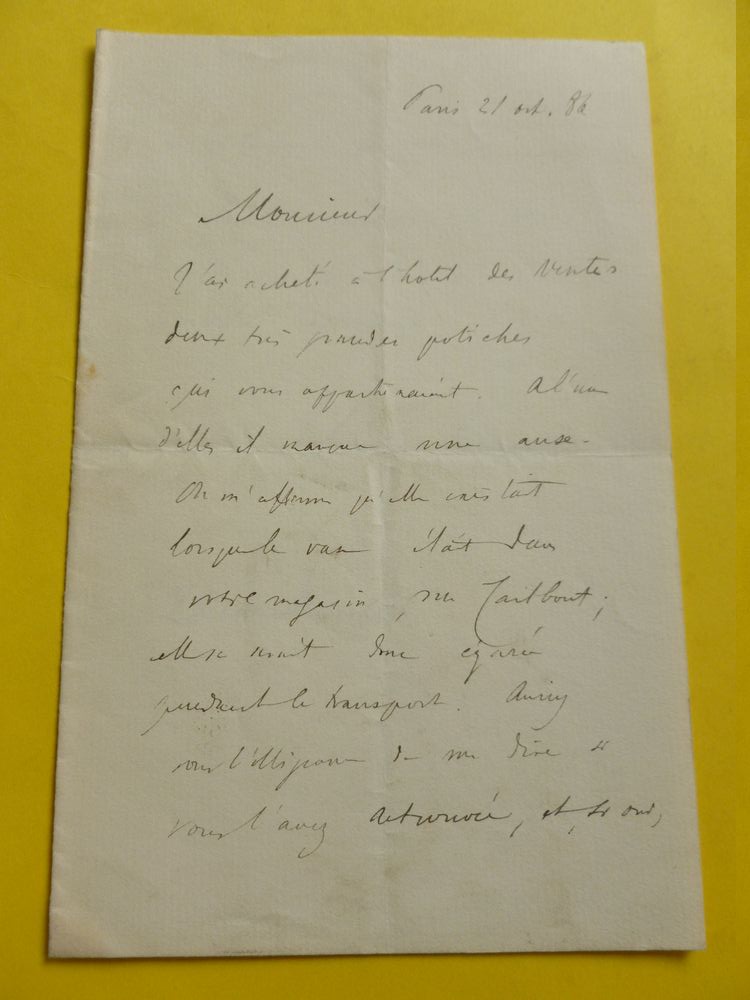 Paris 21 oct. 86
Monsieur
J'ai acheté à l'hotel des Ventes
deux très grandes potiches
qui vous appartenaient. A l'une
d'elles il manque une anse.
On m'affirme qu'elle existait
lorsque le vase était dans
votre magasin, rue Taitbout ;
elle se serait donc égarée
pendant le transport. Auriez
vous l'obligeance de me dire si
vous l'avez retrouvée, et, si oui,